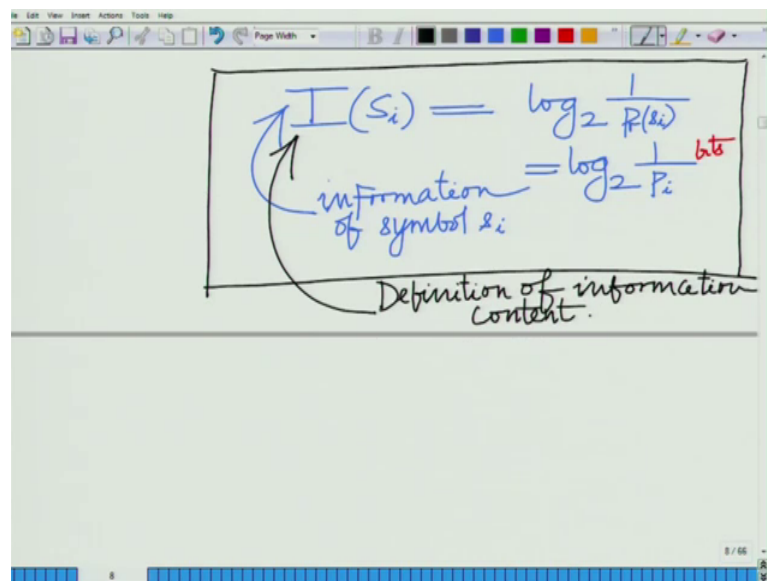 Edit View Insert Actions Tools Help
Page Width
B I
I(Si) = log2 1/Pr(si)
= log2 1/Pi bits
information
of symbol si
Definition of information
content.
8 / 66
8